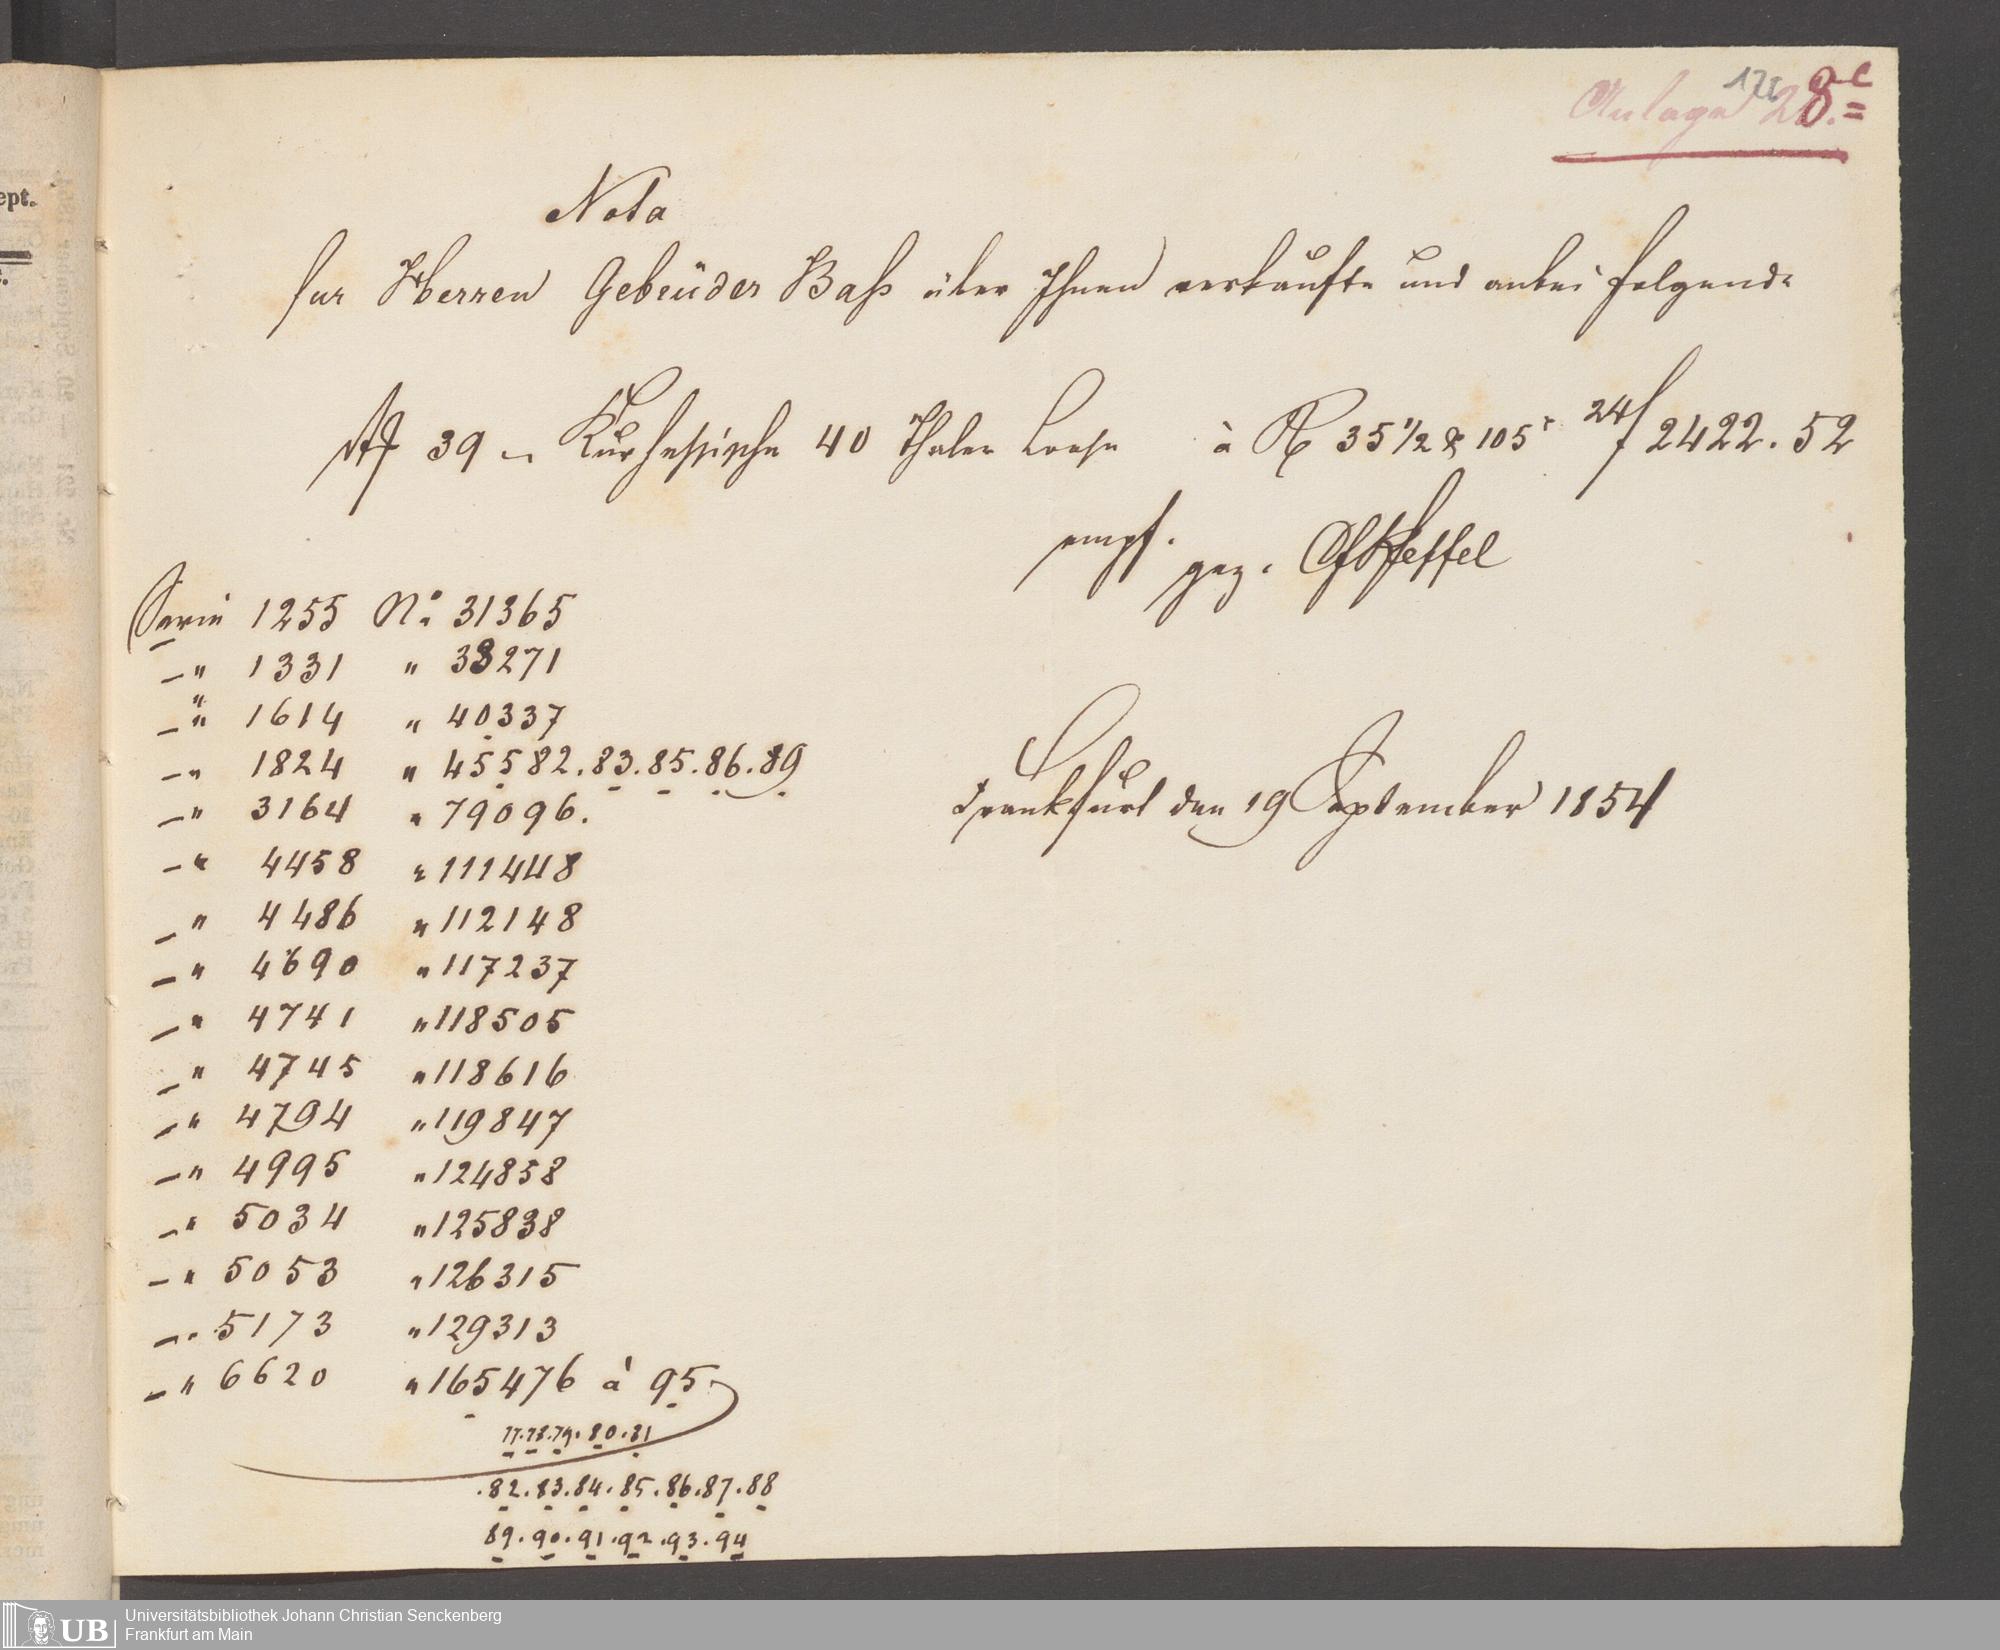 ept.
Anlage 28.c
171
Nota
für Herren Gebrüder Baß über Ihnen verkaufte und anbei folgende
39 Kurhessische 40 Thaler Loose à R 35 1/2 & 105 24/ f 2422.52
empf.
gez. CfPfeffel
Serie 1255 No. 31365
—" 1331 " 33271
—" 1614 " 40337
—" 1824 " 45582.83.85.86.89
—" 3164 " 79096.
—" 4458 " 111448
—" 4486 " 112148
—" 4690 " 117237
—" 4741 " 118505
—" 4745 " 118616
—" 4794 " 119847
—" 4995 " 124858
—" 5034 " 125838
—" 5053 " 126315
—" 5173 " 129313
—" 6620 " 165476 à 95
77.78.79.80.81
.82.83.84.85.86.87.88
89.90.91.92.93.94
Frankfurt den 19 September 1854
UB
Universitätsbibliothek Johann Christian Senckenberg
Frankfurt am Main